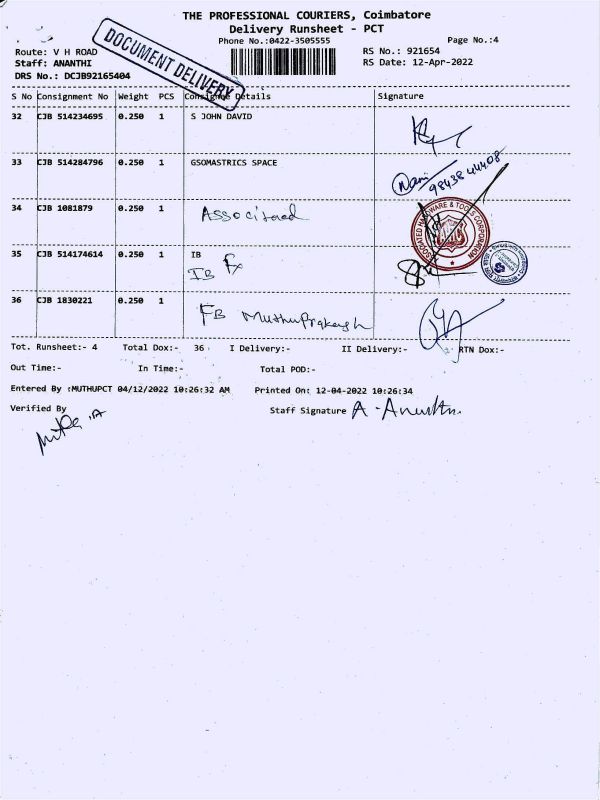 THE PROFESSIONAL COURIERS, Coimbatore
Delivery Runsheet - PCT
Phone No.:0422-3505555 Page No.:4
Route: V H ROAD RS No.: 921654
Staff: ANANTHI RS Date: 12-Apr-2022
DRS No.: DCJB92165404
DOCUMENT DELIVERY
S No Consignment No Weight PCS Consignee Details Signature
32 CJB 514234695 0.250 1 S JOHN DAVID
33 CJB 514284796 0.250 1 GSOMASTRICS SPACE
9843844408
34 CJB 1081879 0.250 1
ASSOCIATED HARDWARE & TOOLS CORPORATION
35 CJB 514174614 0.250 1 IB
IB
36 CJB 1830221 0.250 1 FB Muthuprakash
Tot. Runsheet:- 4 Total Dox:- 36 I Delivery:- II Delivery:- RTN Dox:-
Out Time:- In Time:- Total POD:-
Entered By :MUTHUPCT 04/12/2022 10:26:32 AM Printed On: 12-04-2022 10:26:34
Verified By Staff Signature A. Ananthi